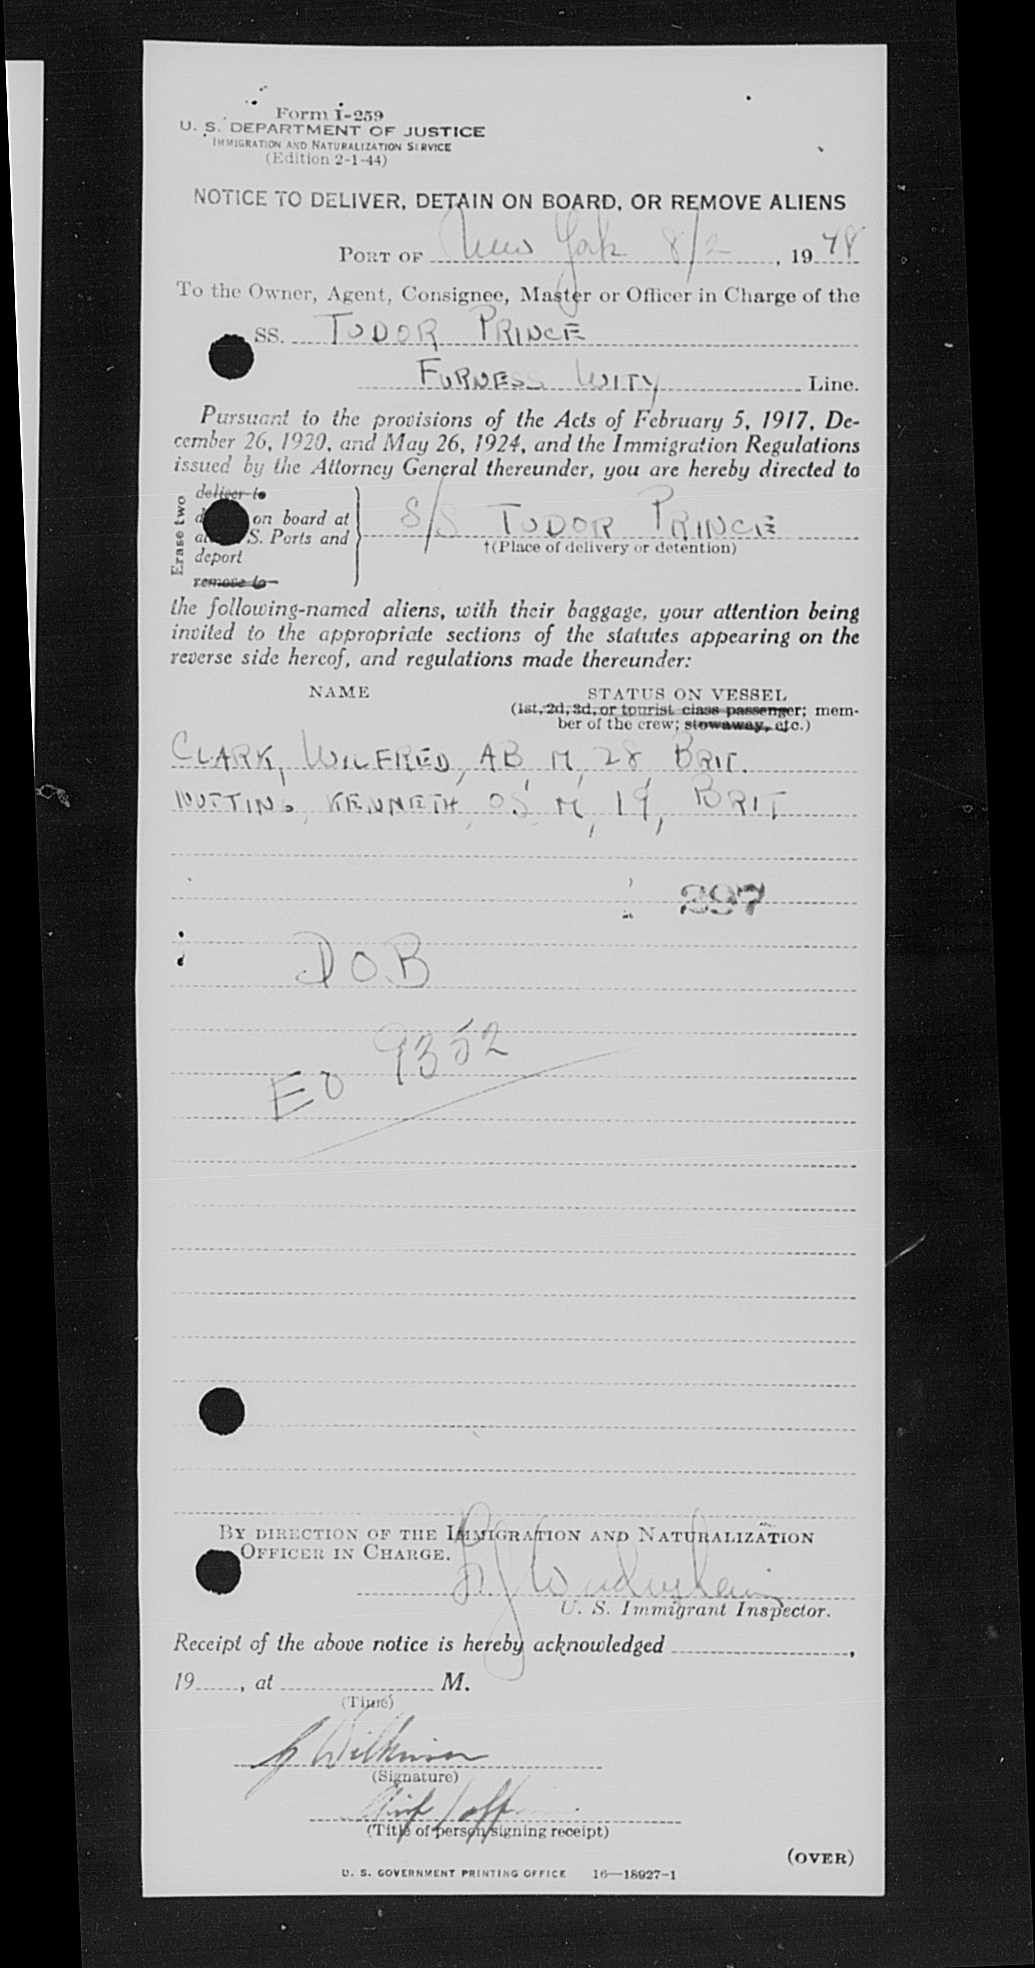 Form I-259
U. S. DEPARTMENT OF JUSTICE
IMMIGRATION AND NATURALIZATION SERVICE
(Edition 2-1-44)
NOTICE TO DELIVER, DETAIN ON BOARD, OR REMOVE ALIENS
PORT OF New York 8/2, 1948
To the Owner, Agent, Consignee, Master or Officer in Charge of the
SS. TUDOR PRINCE
FURNESS WITY Line.
Pursuant to the provisions of the Acts of February 5, 1917, De-
cember 26, 1920, and May 26, 1924, and the Immigration Regulations
issued by the Attorney General thereunder, you are hereby directed to
Erase two
deliver to
on board at
S. Ports and
deport
remove to
S/S TUDOR PRINCE
†(Place of delivery or detention)
the following-named aliens, with their baggage, your attention being
invited to the appropriate sections of the statutes appearing on the
reverse side hereof, and regulations made thereunder:
NAME STATUS ON VESSEL
(1st, 2d, 3d, or tourist class passenger; mem-
ber of the crew; stowaway, etc.)
CLARK, WILFRED, AB, M, 28, BRIT.
NUTTING, KENNETH, OS, M, 19, BRIT
297
D O B
EO 9352
BY DIRECTION OF THE IMMIGRATION AND NATURALIZATION
OFFICER IN CHARGE.
U. S. Immigrant Inspector.
Receipt of the above notice is hereby acknowledged ,
19 , at M.
(Time)
G Wilkinson
(Signature)
Chief Off
(Title of person signing receipt)
(OVER)
U. S. GOVERNMENT PRINTING OFFICE 16—18927-1